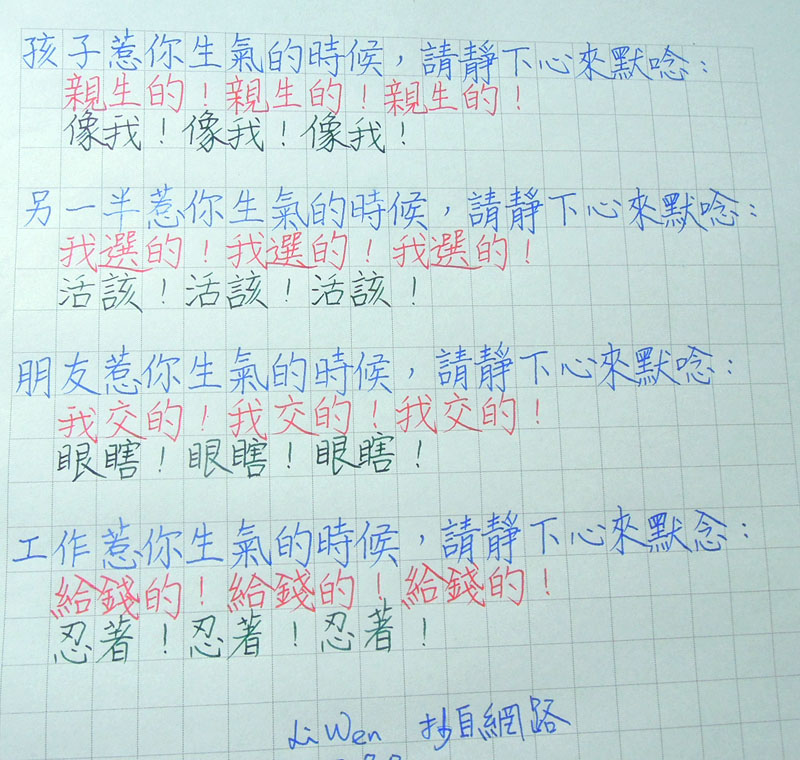 孩子惹你生氣的時候，請靜下心來默唸：
親生的！親生的！親生的！
像我！像我！像我！
另一半惹你生氣的時候，請靜下心來默唸：
我選的！我選的！我選的！
活該！活該！活該！
朋友惹你生氣的時候，請靜下心來默唸：
我交的！我交的！我交的！
眼瞎！眼瞎！眼瞎！
工作惹你生氣的時候，請靜下心來默念：
給錢的！給錢的！給錢的！
忍著！忍著！忍著！
LiWen 抄自網路